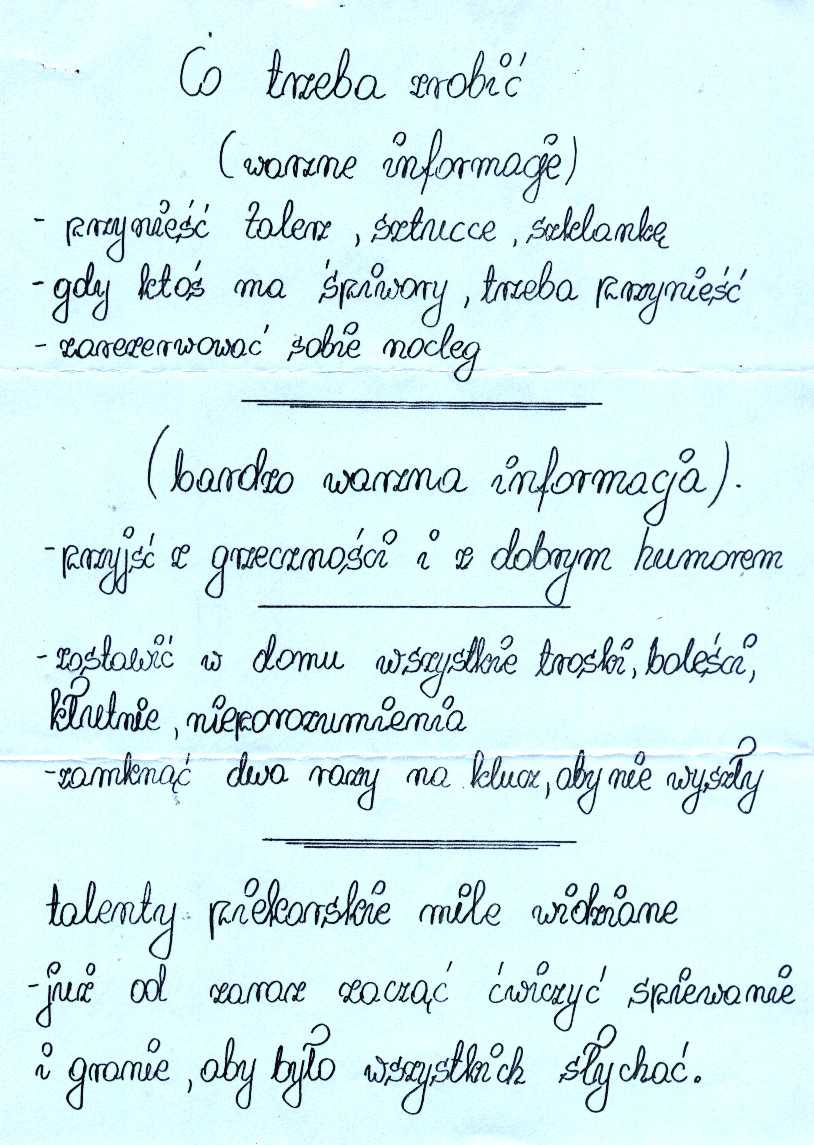 Co trzeba zrobić
(warzne informacje)
- przynieść talerz, sztucce, szklankę
- gdy ktoś ma śpiwory, trzeba przynieść
- zarezerwować sobie nocleg
(bardzo warzna informacja).
- przyjść z grzeczności i z dobrym humorem
- zostawić w domu wszystkie troski, boleści,
kłutnie, nieporozumienia
- zamknąć dwa razy na klucz, aby nie wyszły
talenty piekarskie mile widziane
- już od zaraz zacząć ćwiczyć śpiewanie
i granie, aby było wszystkich słychać.